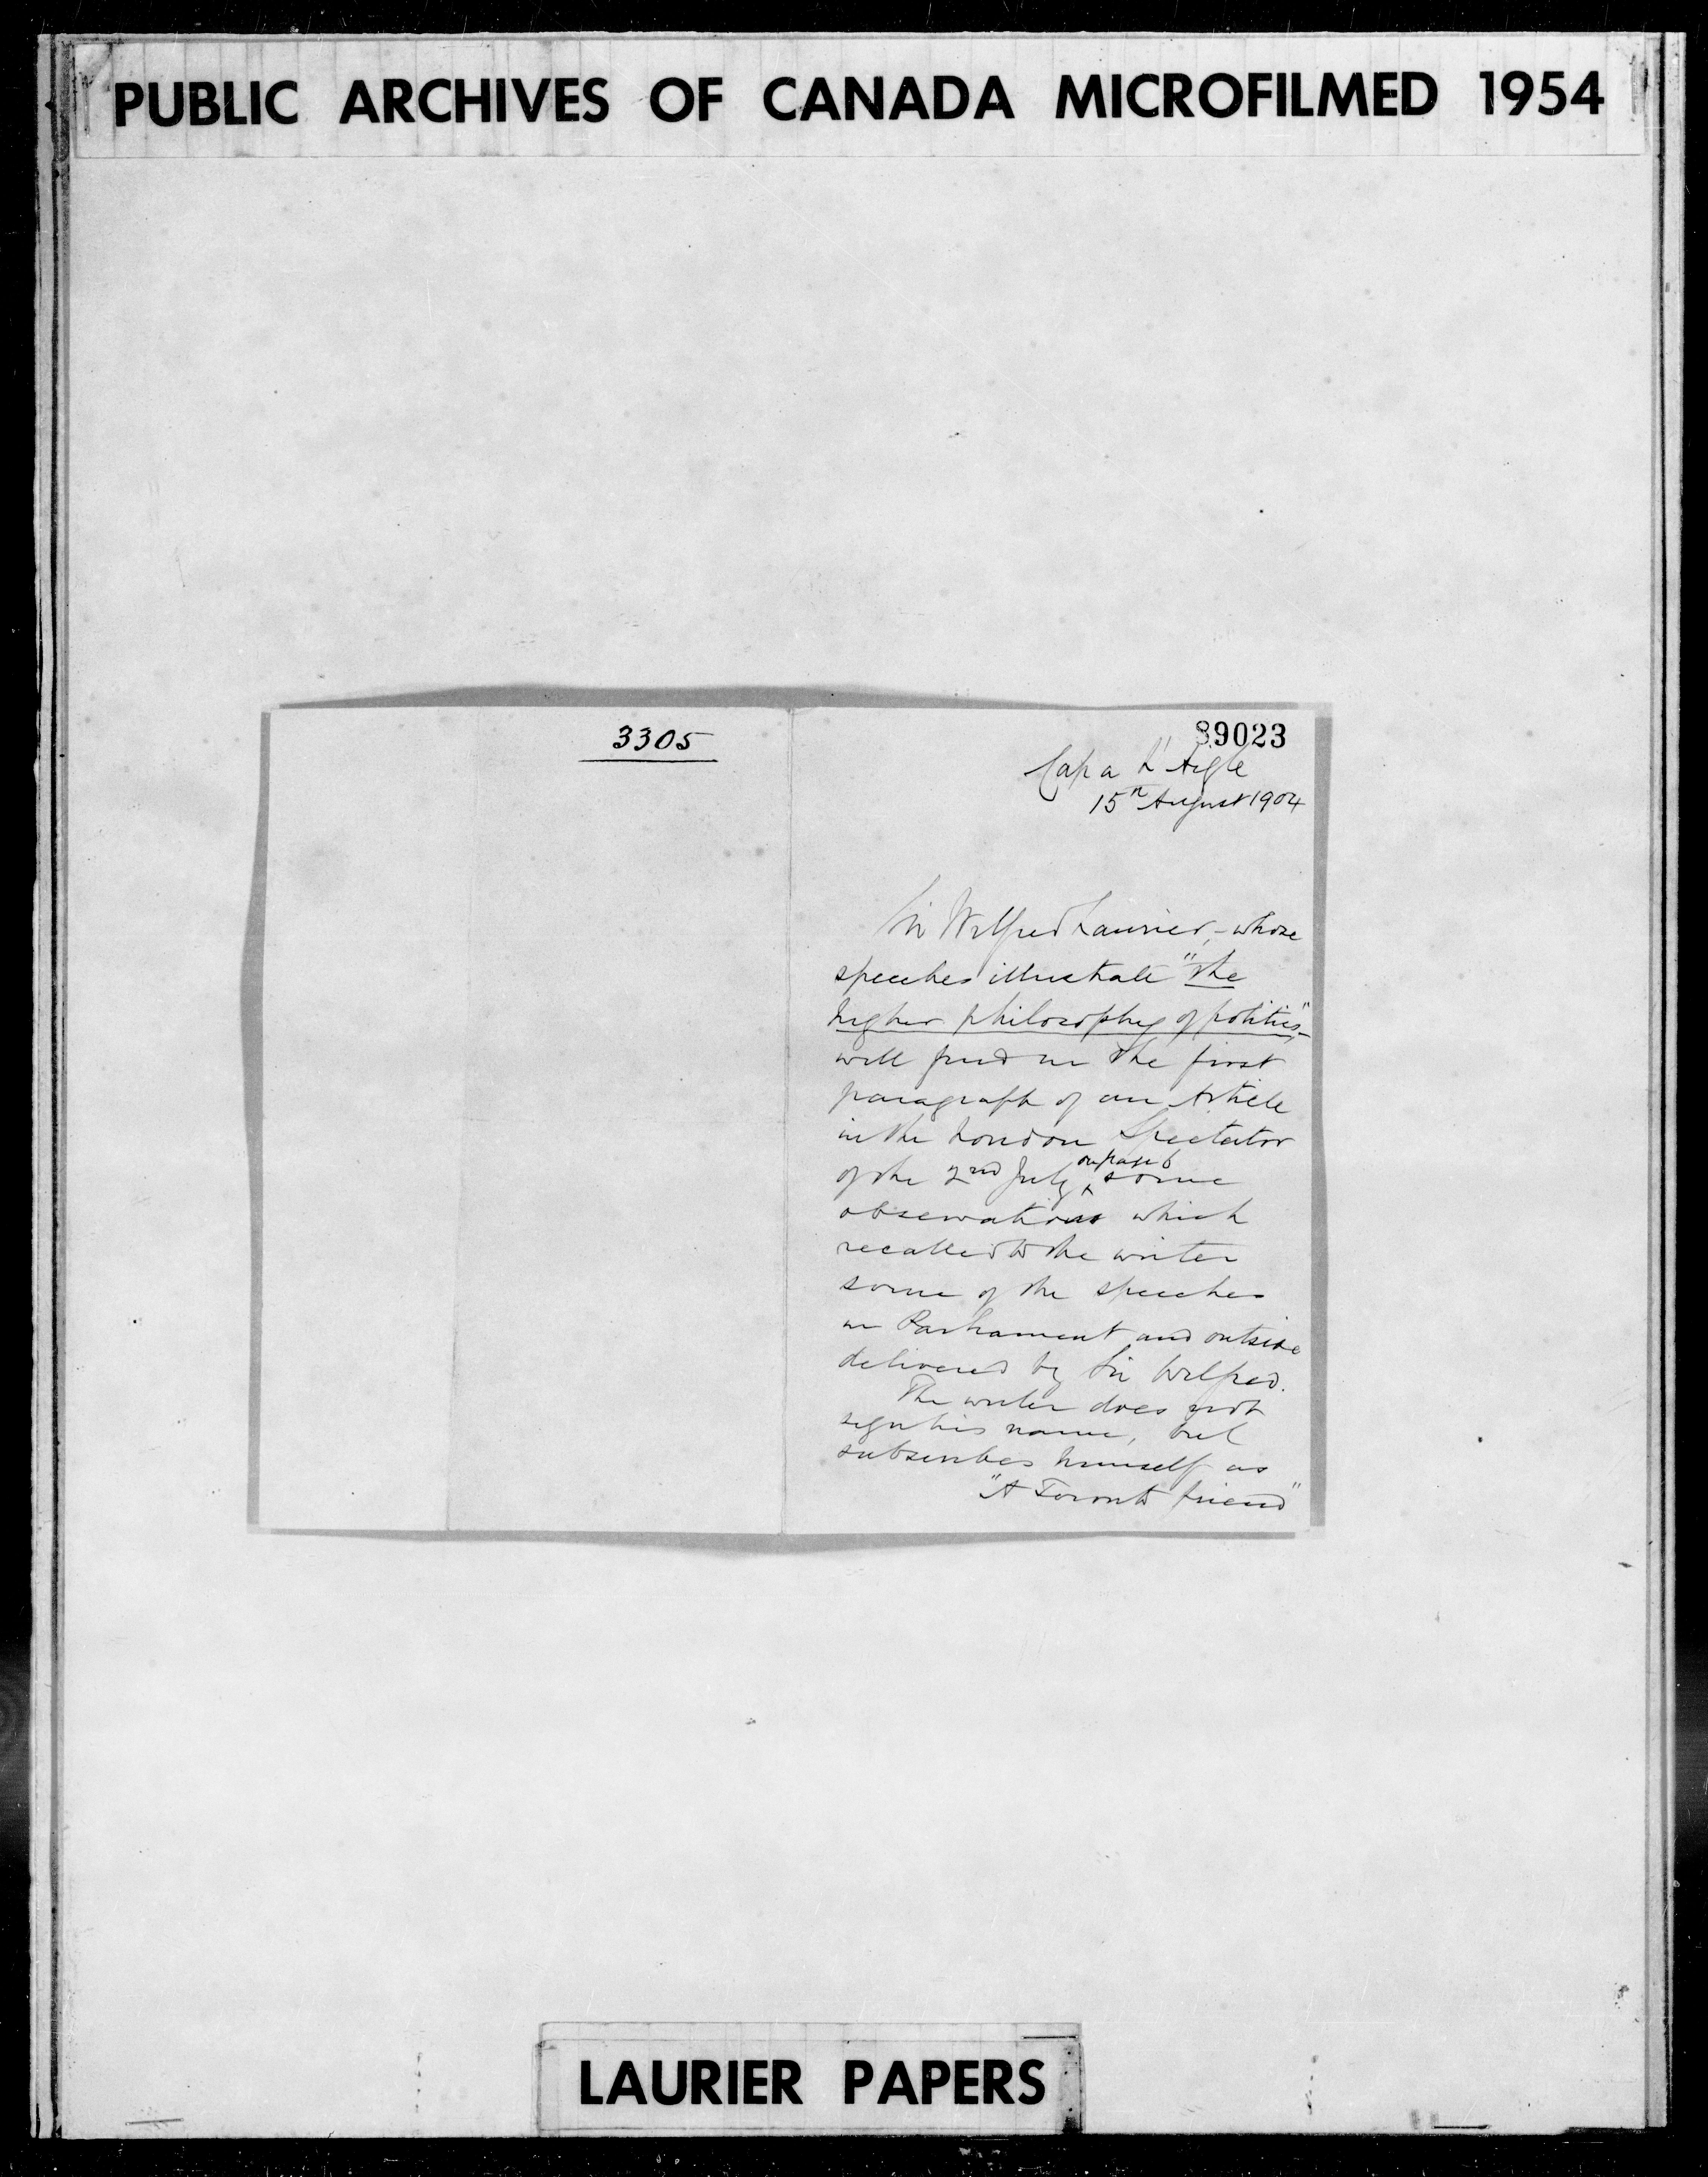 PUBLIC ARCHIVES OF CANADA MICROFILMED 1954
3305
89023
Cap a L'Aigle
15th August 1904
Sir Wilfred Laurier, - whose
speeches illustrate "the
higher philosophy of politics" -
will find in the first
paragraph of an Article
in the London Spectator
of the 2nd July on page 6 some
observations which
recalled to the writer
some of the speeches
in Parliament and outside
delivered by Sir Wilfred.
The writer does not
sign his name, but
subscribes himself as
"A Toronto friend"
LAURIER PAPERS